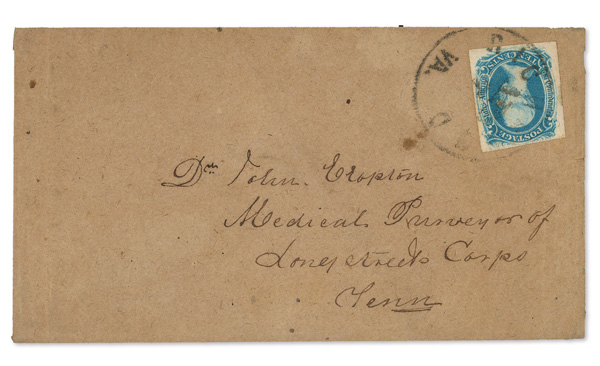 VA.
POSTAGE
TEN CENTS
Dr. John. Cropton
Medical Purveyor of
Longstreets Corps
Tenn